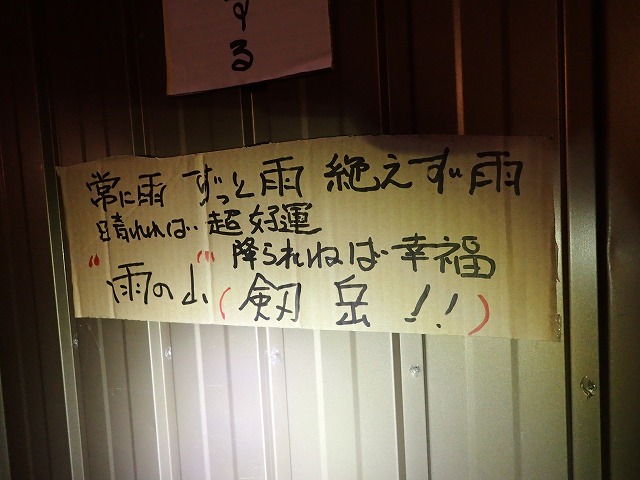 する
常に雨 ずっと雨 絶えず雨
晴れれば 超好運
降られねば 幸福
"雨の山"(剱岳!!)